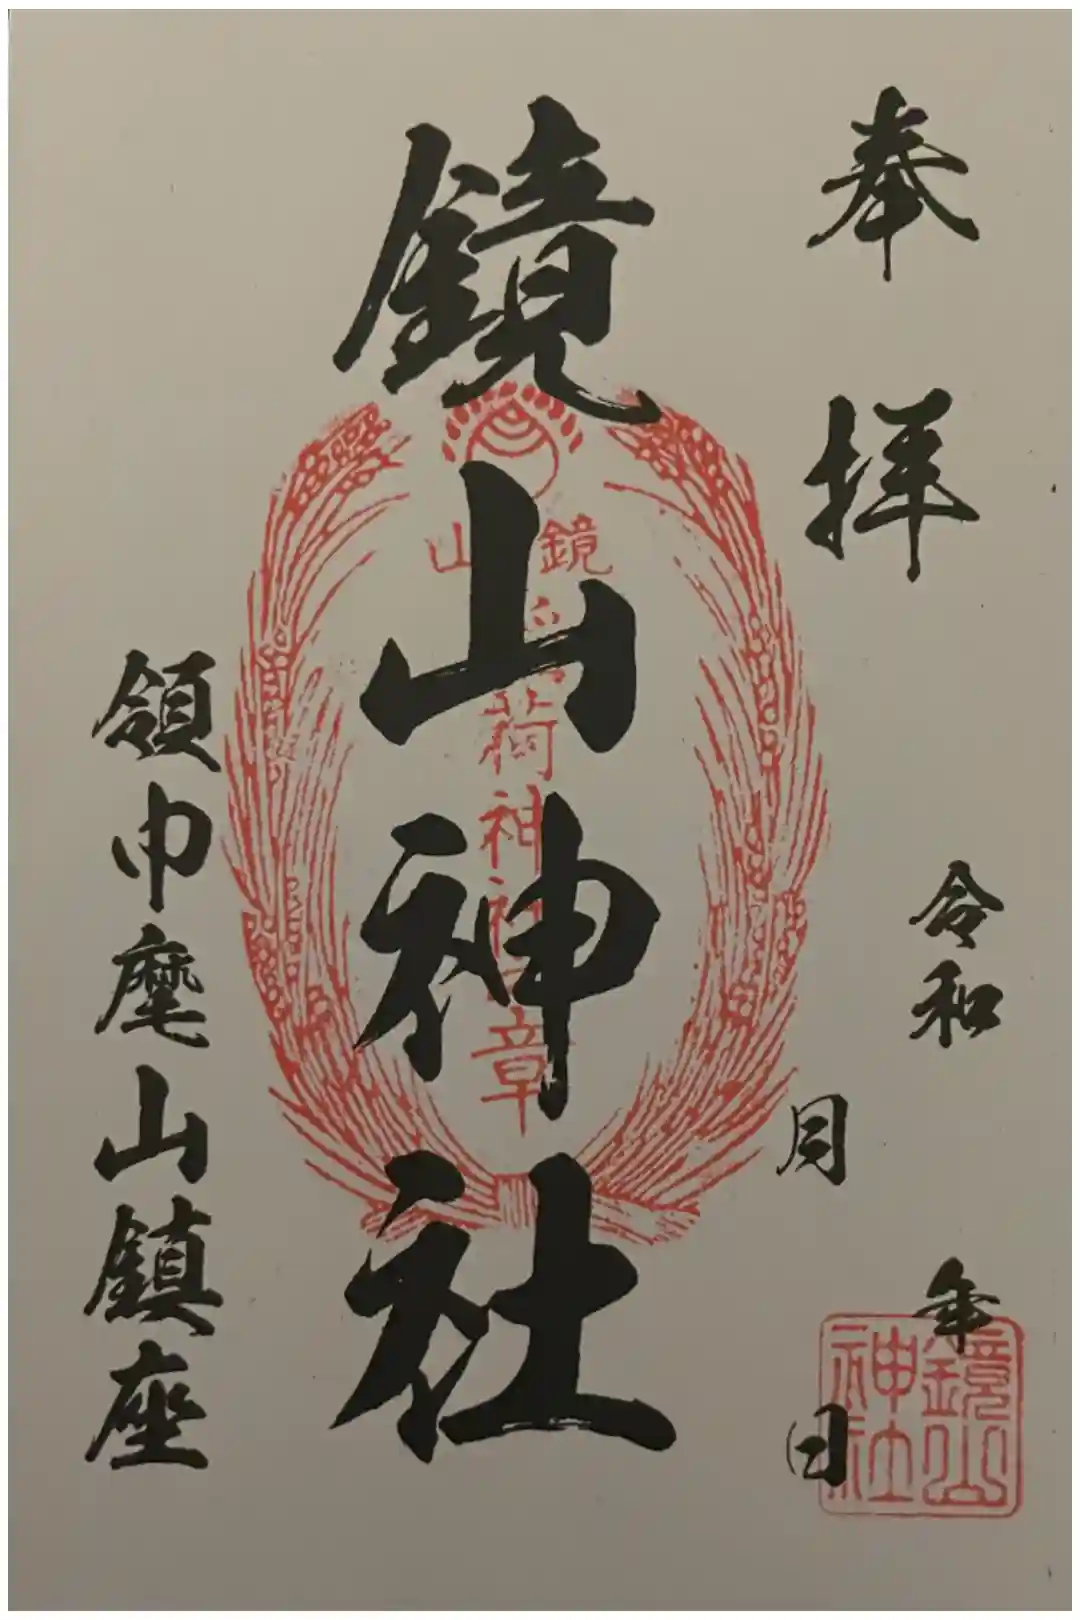 奉拝
令和 年
月 日
鏡山神社
鏡山
稲荷神社
章
領巾麾山鎮座
鏡山神社